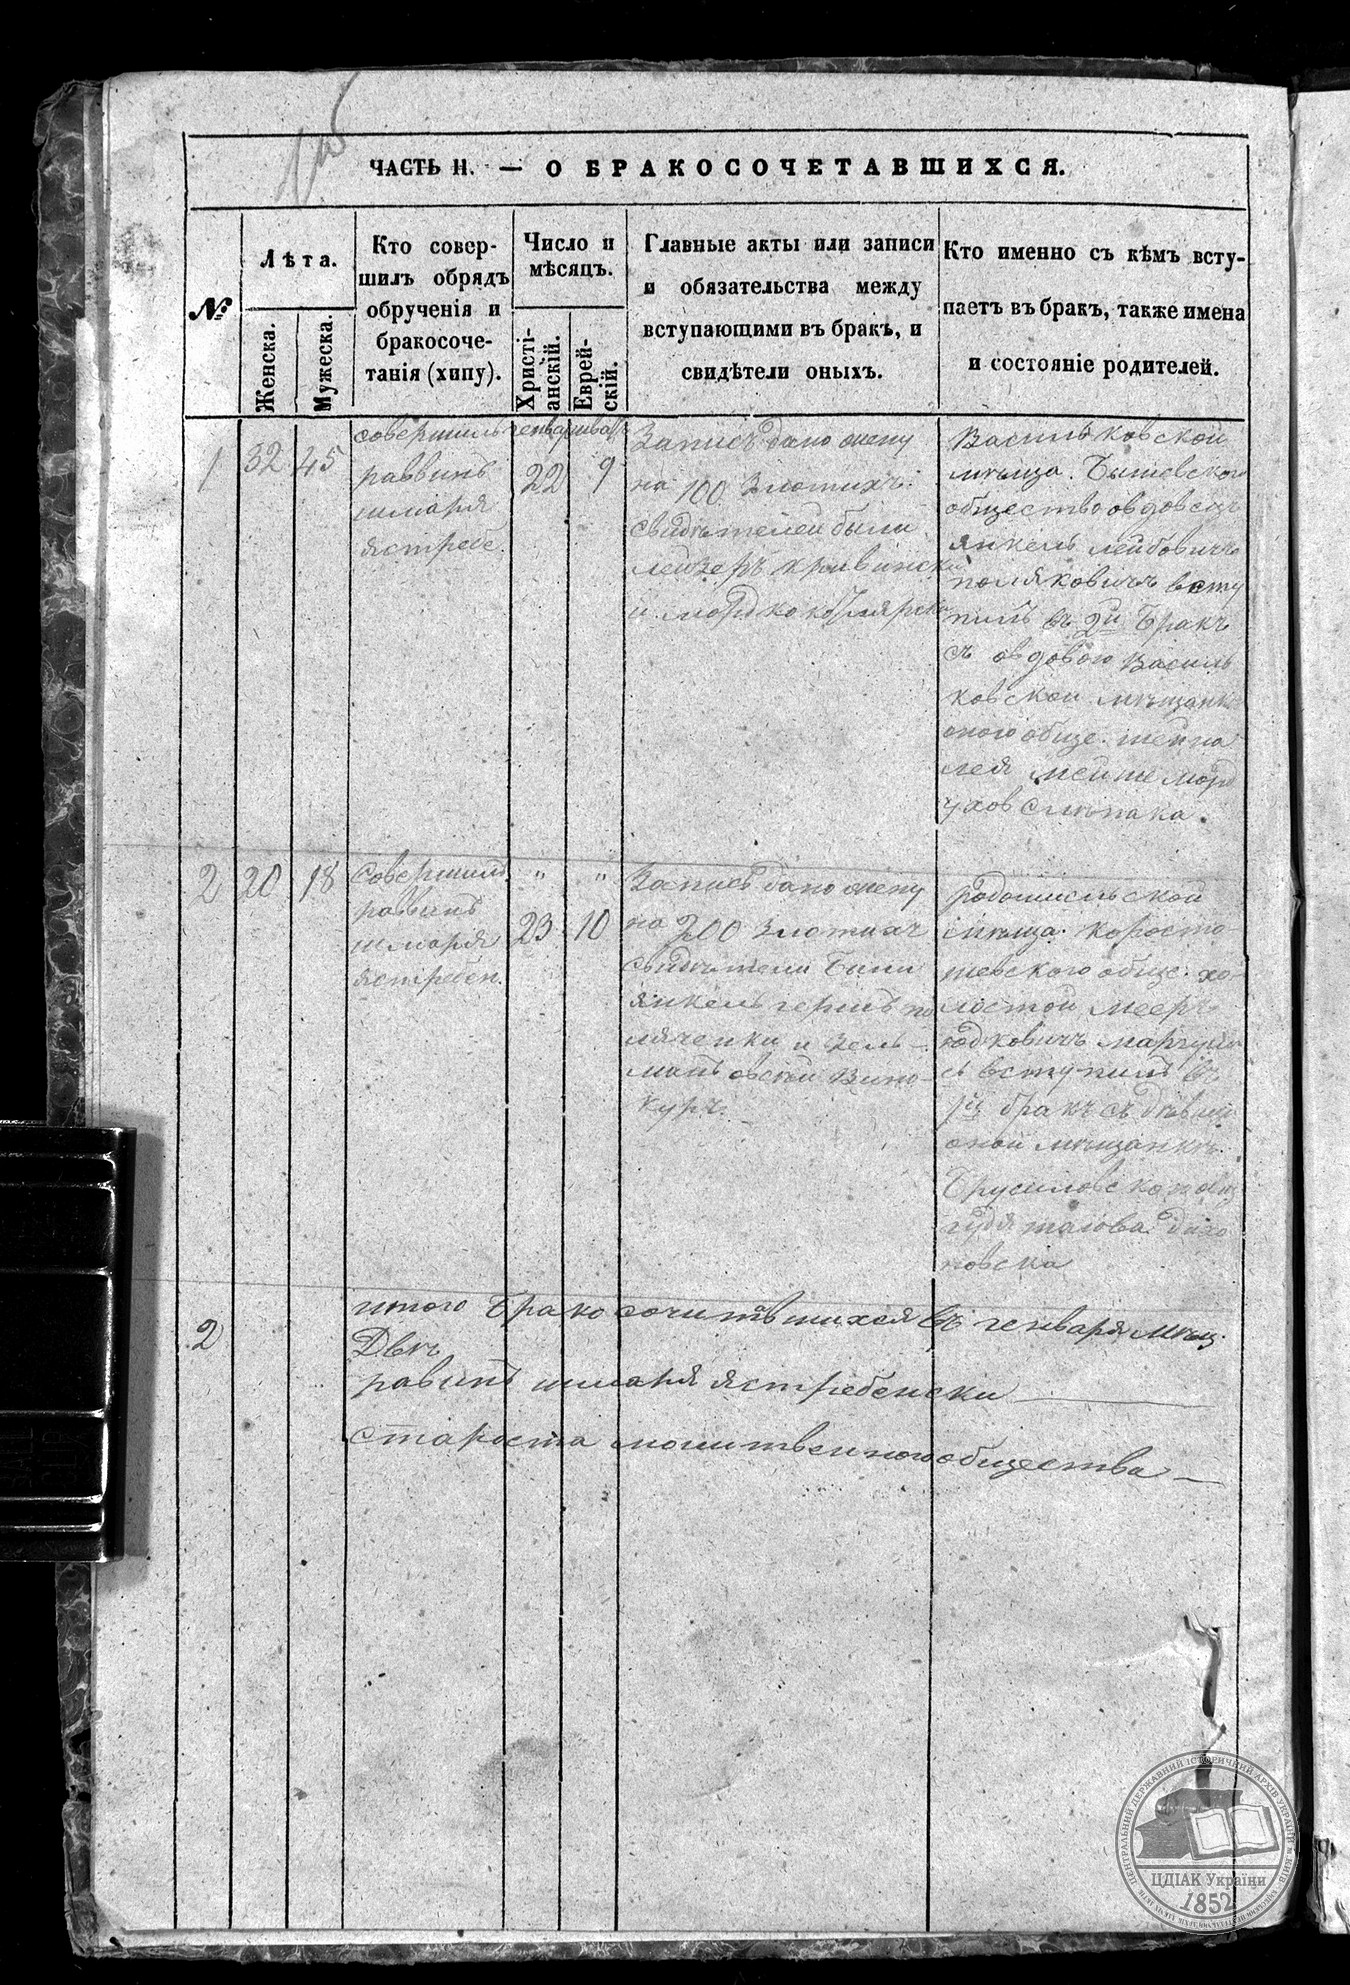 ЧАСТЬ II. — О БРАКОСОЧЕТАВШИХСЯ.
№
Лѣта.
Женска.
Мужеска.
Кто совер-
шилъ обрядъ
обрученія и
бракосоче-
танія (хипу).
Число и
мѣсяцъ.
Христі-
анскій.
Еврей-
скій.
Главные акты или записи
и обязательства между
вступающими въ бракъ, и
свидѣтели оныхъ.
Кто именно съ кѣмъ всту-
паетъ въ бракъ, также имена
и состояніе родителей.
1
32
45
совершилъ
раввинъ
шмаря
ястребе.
генваря
22
9
Запись дано оному
на 100 Злотихъ.
свидѣтелей были
лейзеръ
и мордко
Васильковской
мѣща. Бышевского
общество овдовецъ
янкель лейбовичъ
поляковичъ всту
пилъ въ 2й Бракъ
съ овдовою Василь
ковской мѣщанк.
оного обще.
лея мейше морд
ухов
2
20
18
Совершилъ
раввинъ
шмаря
ястребен.
"
23
"
10
Запись дано оному
на 200 Злотихъ
свидѣтели Были
янкель герш по
ляченки и Зель-
манъ Вино-
куръ.
радомисльской
мѣща. коросто-
шевского обще. хо-
лостой мееръ
юдковичъ маргули
съ вступилъ въ
1й бракъ съ дѣвиц
оной мѣщанкъ.
Брусиловского общ
новска
2
итого Бракосочитавшихся въ генваря мѣц.
Двѣ
равинъ шмаря ястребенски
староста молитвенного общества
ЦЕНТРАЛЬНИЙ ДЕРЖАВНИЙ ІСТОРИЧНИЙ АРХІВ УКРАЇНИ, м. КИЇВ
ЦДІАК України
1852